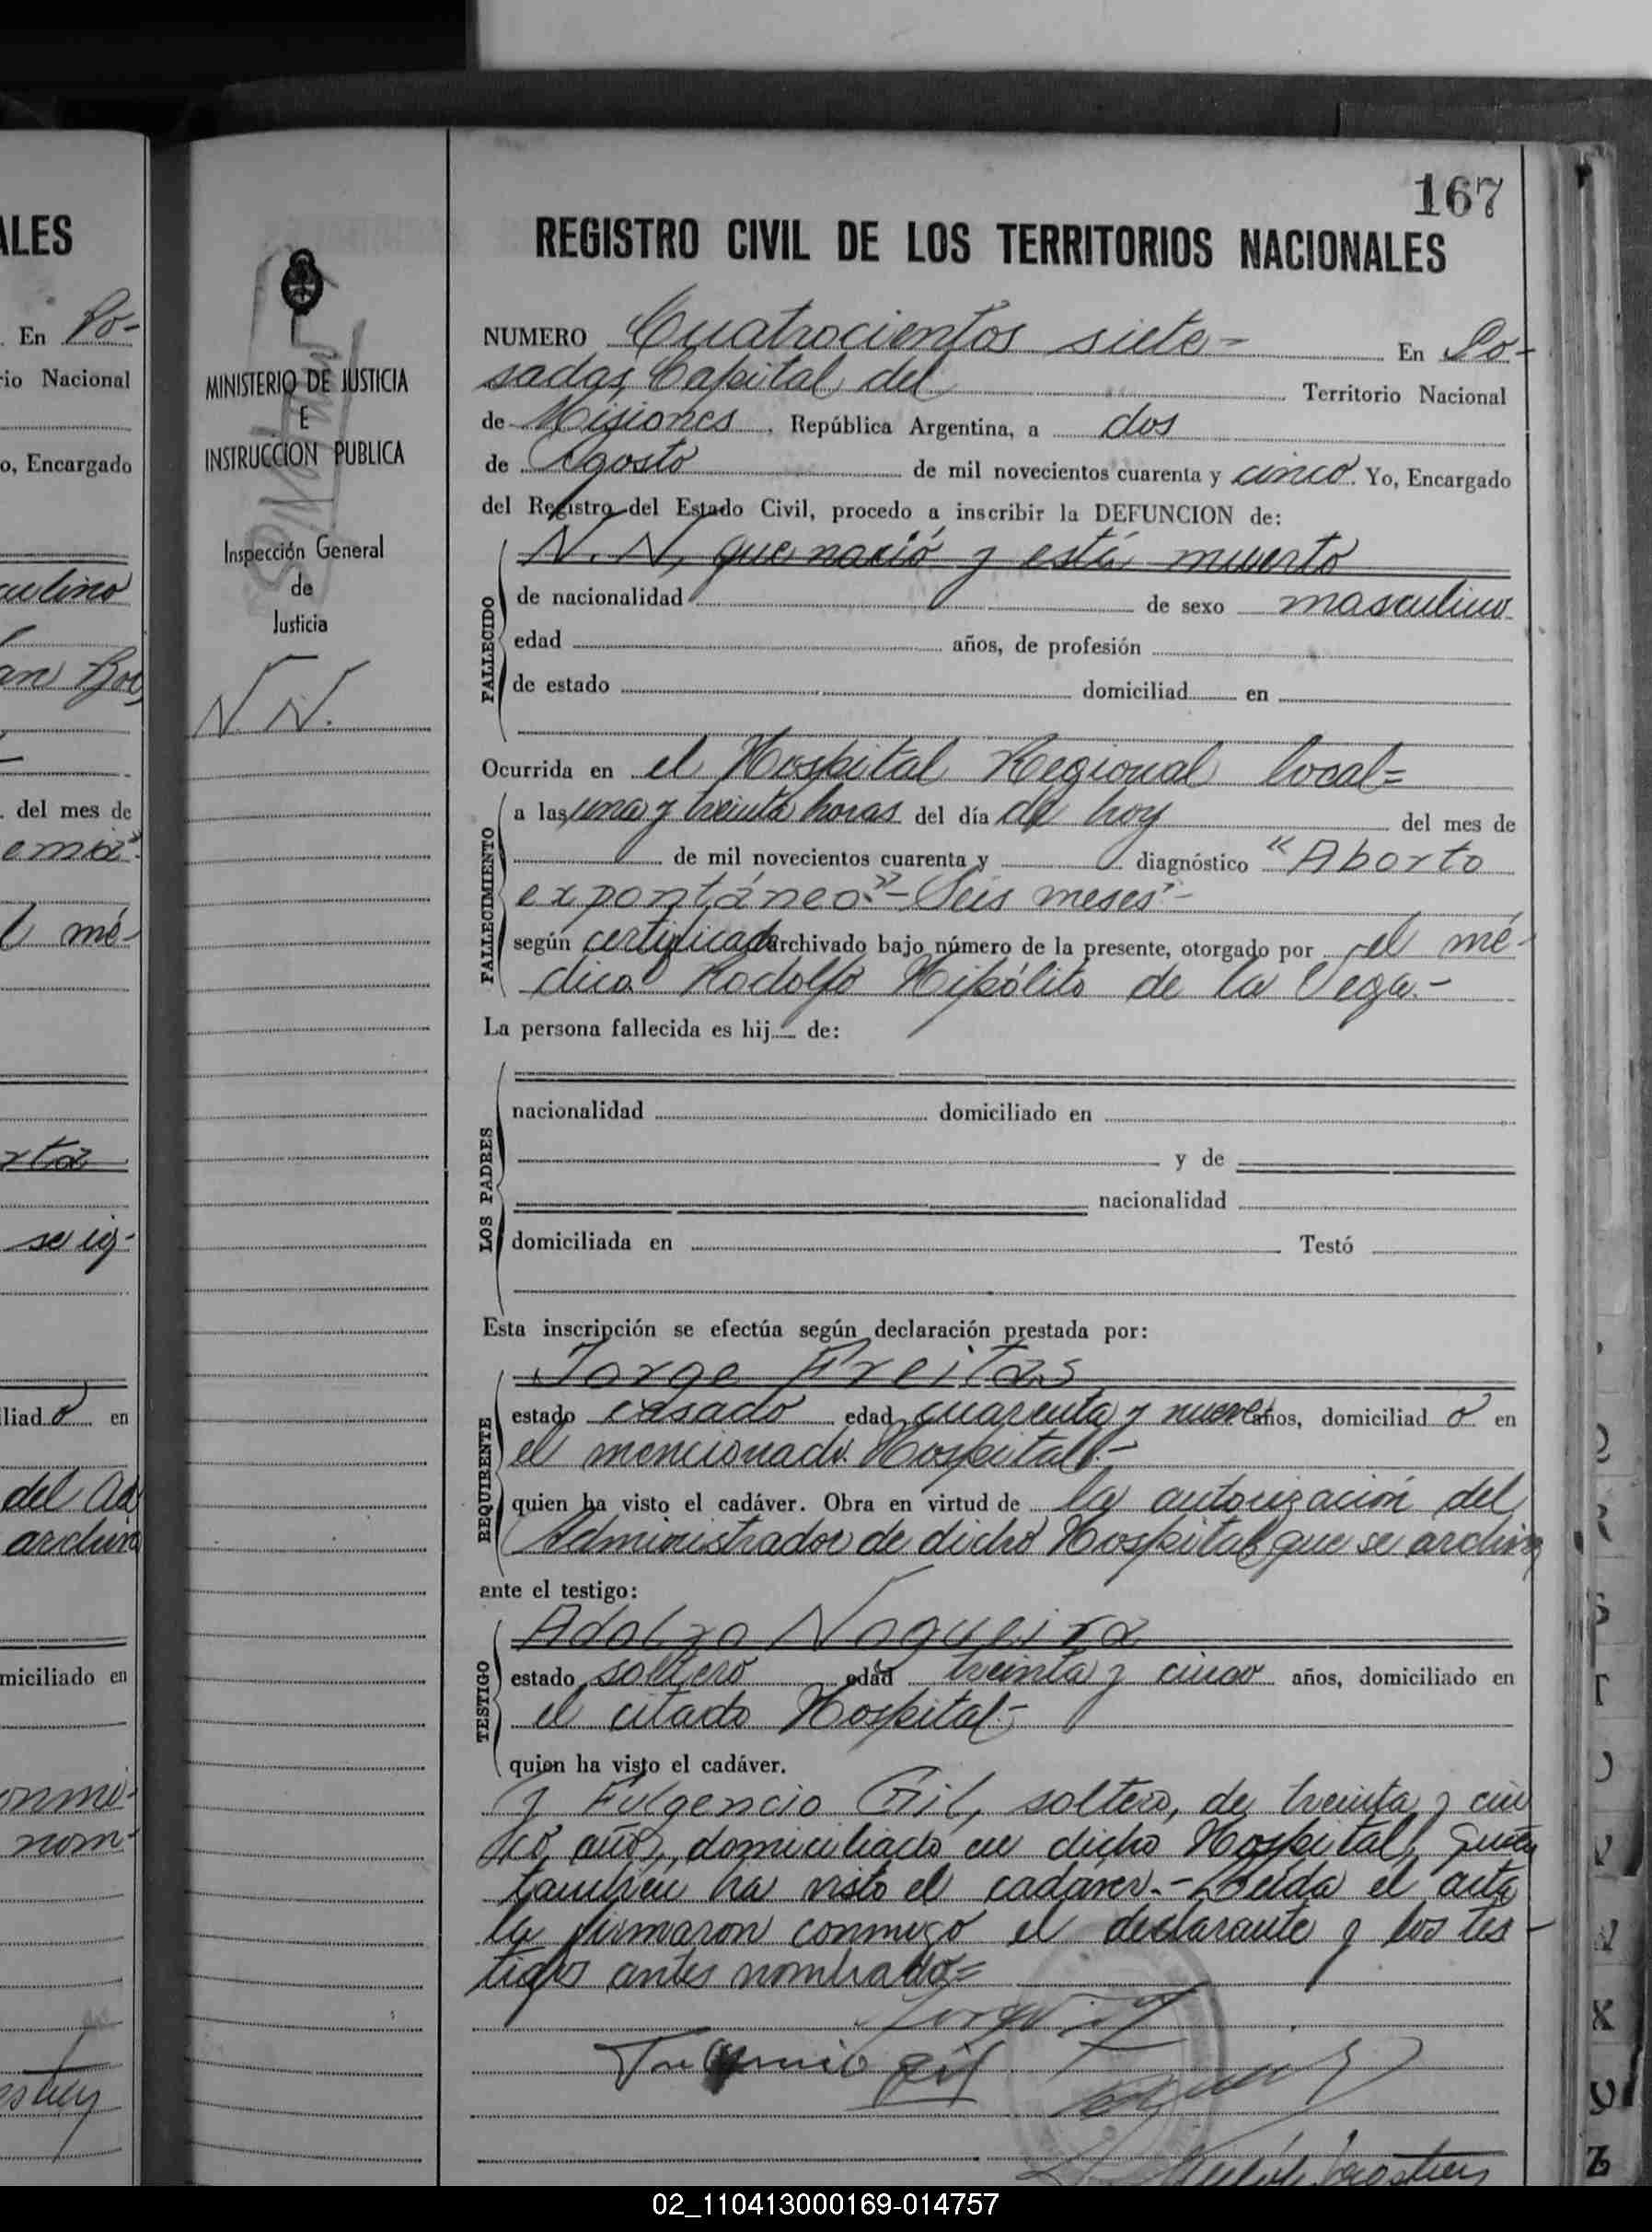 167
ALES
En Po-
rio Nacional
o, Encargado
culino
del mes de
emia".
l mé-
rta
se ig-
liad o en
del Ad
archiva
miciliado en
nom-
MINISTERIO DE JUSTICIA
E
INSTRUCCION PUBLICA
Inspección General
de
Justicia
N. N.
REGISTRO CIVIL DE LOS TERRITORIOS NACIONALES
NUMERO Cuatrocientos siete= En Po-
sadas, Capital del Territorio Nacional
de Misiones, República Argentina, a dos
de Agosto de mil novecientos cuarenta y cinco. Yo, Encargado
del Registro del Estado Civil, procedo a inscribir la DEFUNCION de:
N. N, que nació y está muerto
FALLECIDO
de nacionalidad de sexo masculino
edad años, de profesión
de estado domiciliad en
Ocurrida en el Hospital Regional local=
FALLECIMIENTO
a las una y treinta horas del día de hoy del mes de
de mil novecientos cuarenta y diagnóstico "Aborto
expontáneo."- Seis meses"-
según certificado archivado bajo número de la presente, otorgado por el mé-
dico Rodolfo Hipólito de la Vega.-
La persona fallecida es hij de:
LOS PADRES
nacionalidad domiciliado en
y de
nacionalidad
domiciliada en Testó
Esta inscripción se efectúa según declaración prestada por:
REQUIRENTE
Jorge Freitas
estado casado edad cuarenta y nueve años, domiciliad o en
el mencionado Hospital.-
quien ha visto el cadáver. Obra en virtud de la autorización del
Administrador de dicho Hospital, que se archiva
ante el testigo:
TESTIGO
Adolfo Nogueira
estado soltero edad treinta y cinco años, domiciliado en
el citado Hospital.-
quien ha visto el cadáver.
y Fulgencio Gil, soltero, de treinta y cin
co años, domiciliado en dicho Hospital, quien
también ha visto el cadáver.- Leída el acta
la firmaron conmigo el declarante y los tes-
tigos antes nombrados=
gil
02_110413000169-014757